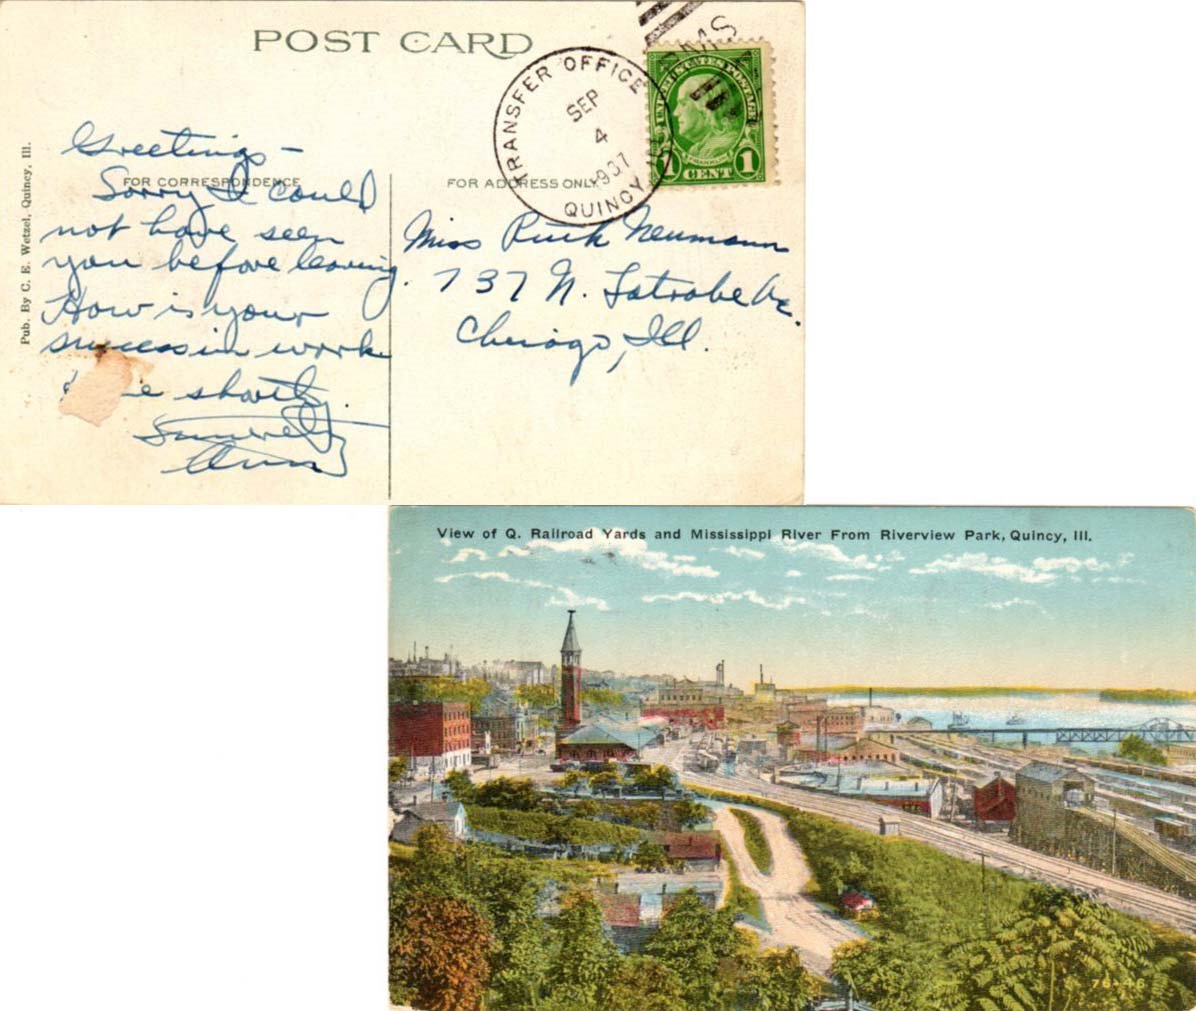 POST CARD
TRANSFER OFFICE
SEP
4
1937
QUINCY
RMS
UNITED STATES POSTAGE
FRANKLIN
1 CENT 1
Pub. By C. E. Wetzel, Quincy, Ill.
FOR CORRESPONDENCE
FOR ADDRESS ONLY
Greetings –
Sorry I could
not have seen
you before leaving.
How is your
success in work
shortly.
Sincerely
Miss Ruth Neumann
737 N. Latrobe Av.
Chicago, Ill.
View of Q. Railroad Yards and Mississippi River From Riverview Park, Quincy, Ill.
76-46